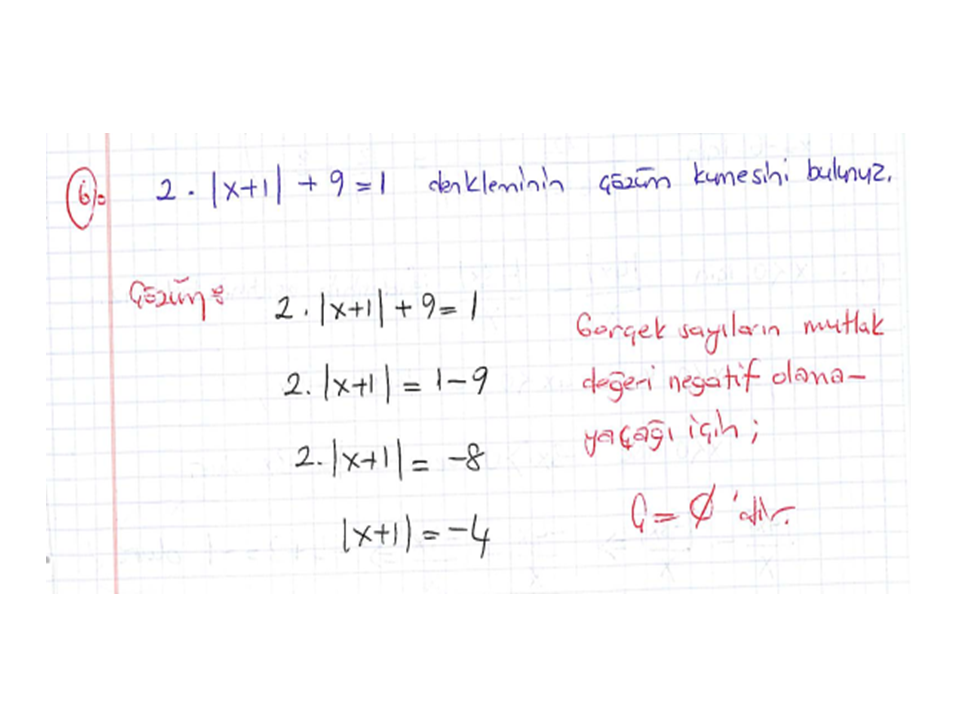 6). 2 . |x+1| + 9 = 1 denkleminin çözüm kümesini bulunuz.
Çözüm:
2 . |x+1| + 9 = 1
2. |x+1| = 1-9
2. |x+1| = -8
|x+1| = -4
Gerçek sayıların mutlak
değeri negatif olama-
yaçağı için ;
Ç = ∅ 'dir.